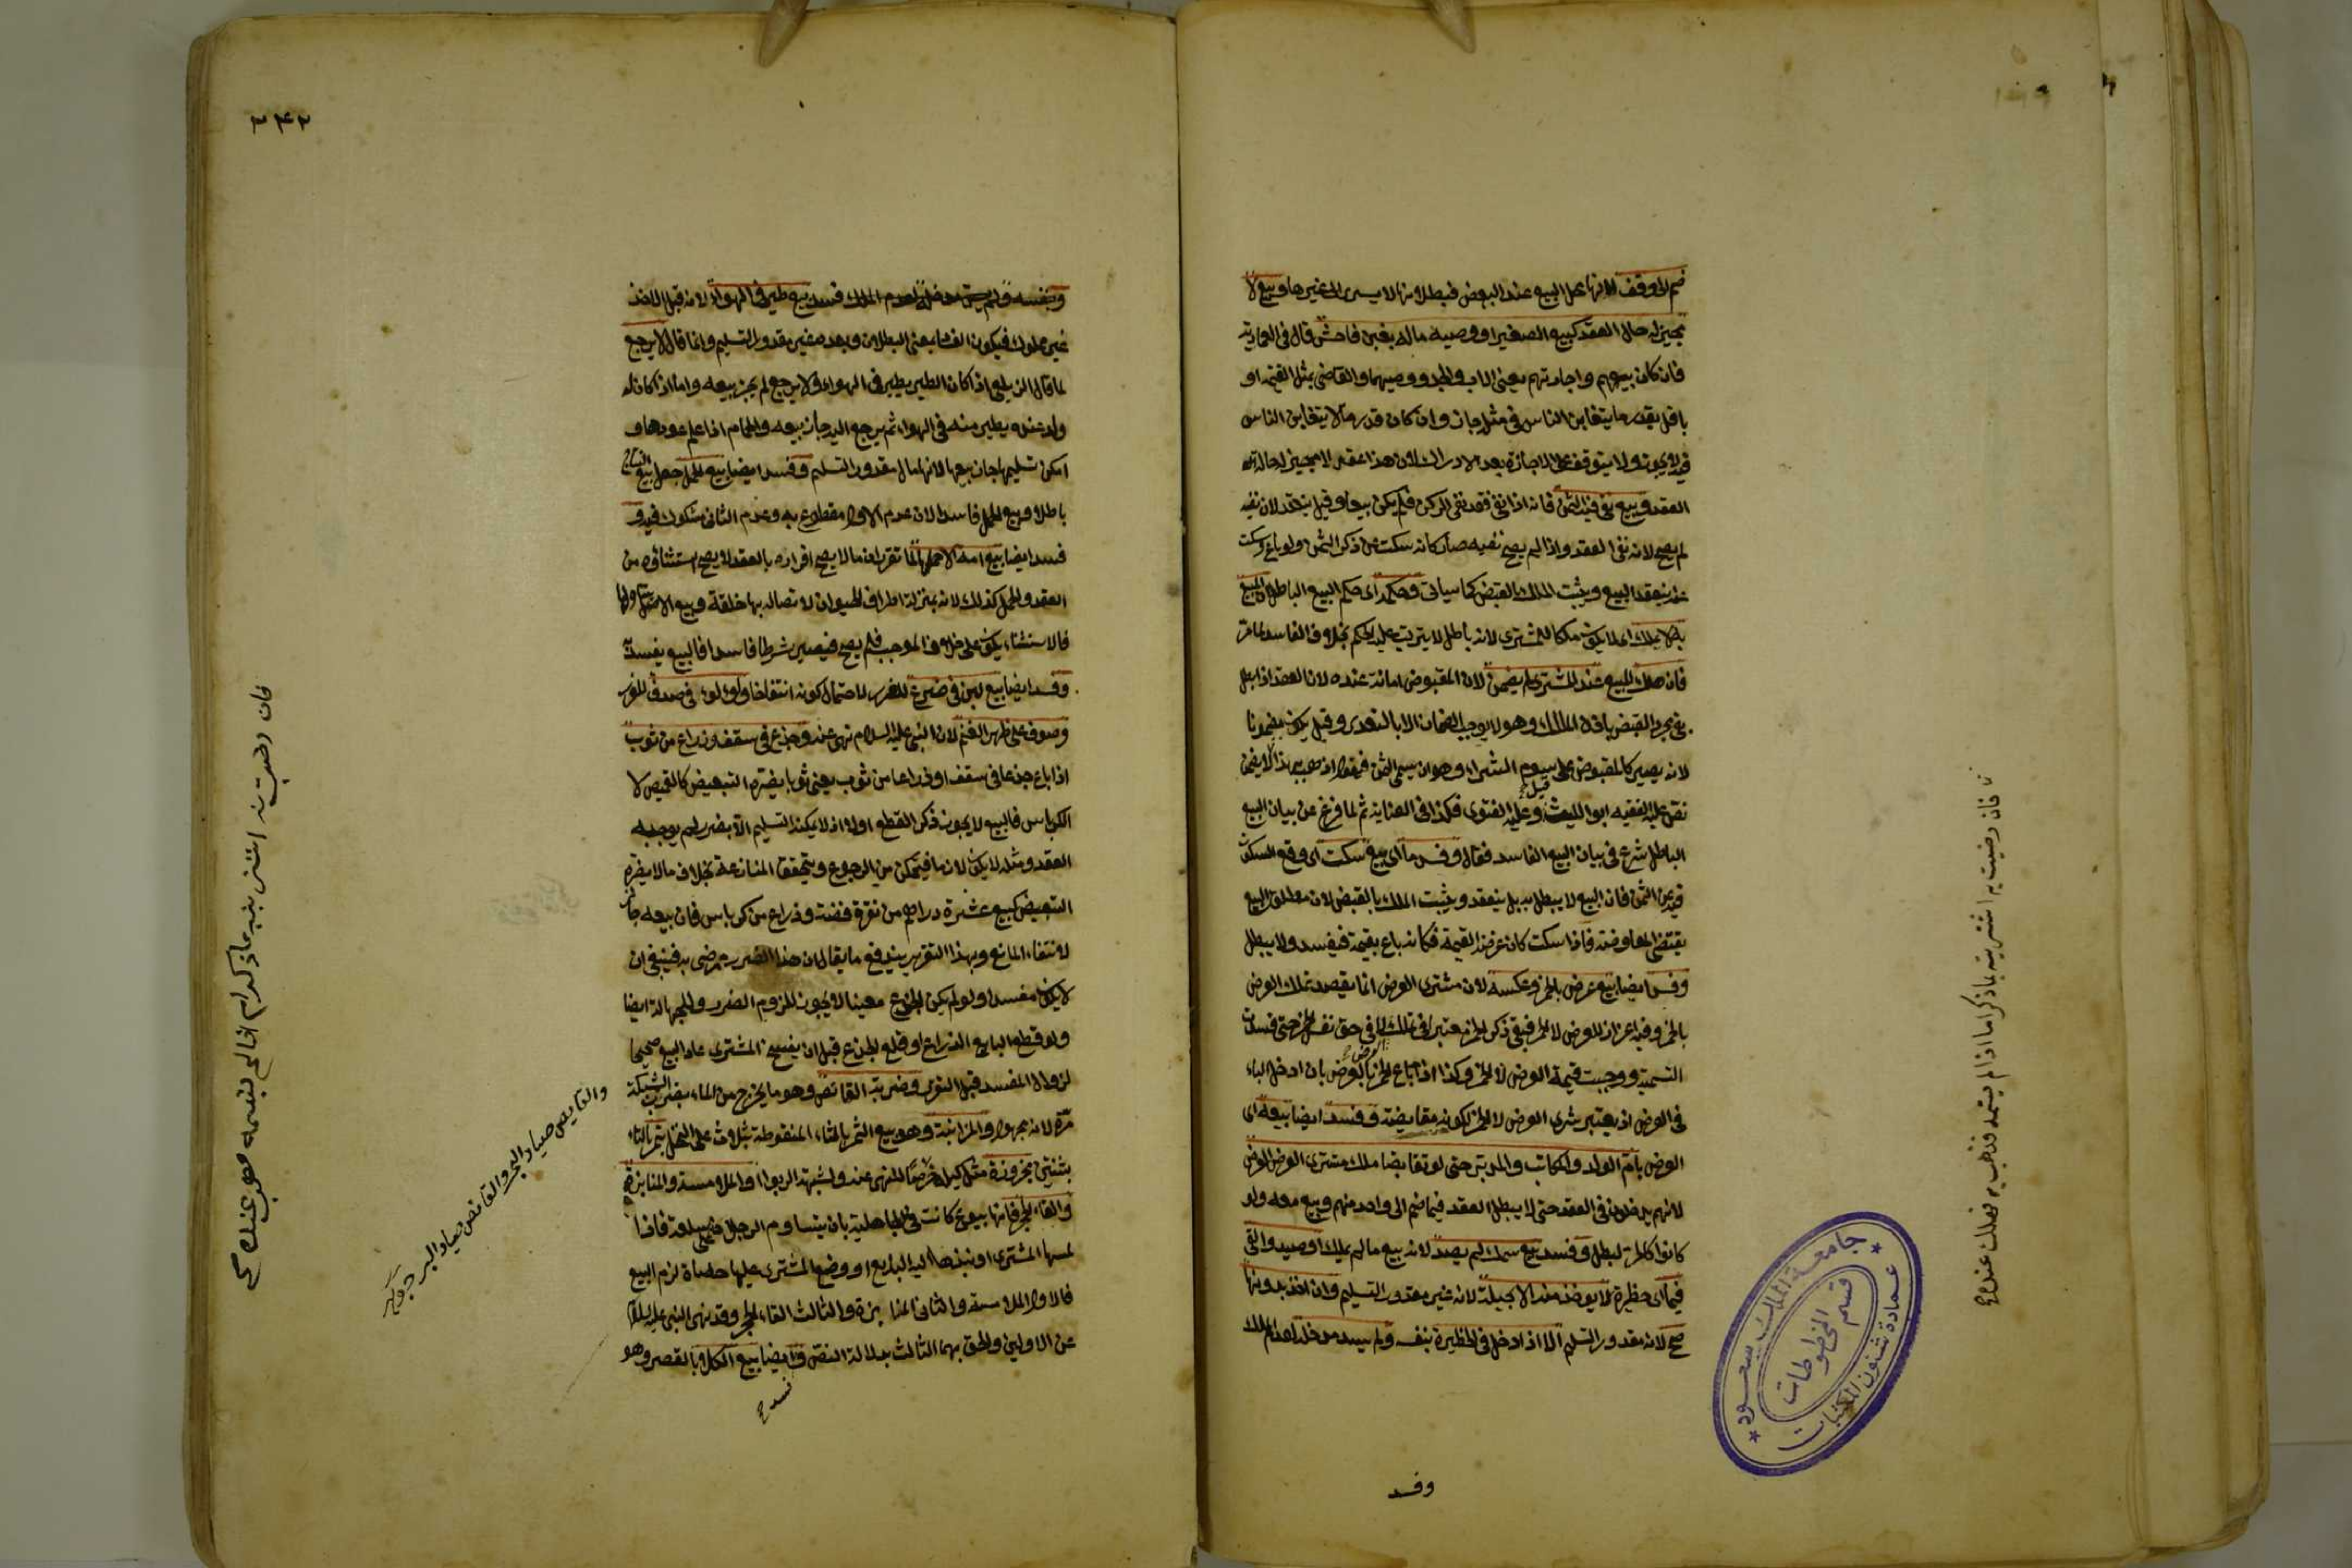 ضم الى وقف لانها محل البيع عند البعض فبطلانها لا يسرى الى غيرها وبيع لا
مجيز له حال العقد كبيع الصغير او وصيه ماله بغبن فاحش قال فى العمادية
فان كان بيعهم واجارتهم يعنى الاب والجد ووصيهما والقاضى بمثل القيمة او
باقل بقدر ما يتغابن الناس فى مثله جاز وان كان قدر ما لا يتغابن الناس
فيه لا يجوز ولا يتوقف على الاجازة بعد الادراك لان هذا عقد لا مجيز له حالة
العقد وبيع نفى فيه الثمن فانه اذا نفى فقد نفى الركن فلم يكن بيعا وقيل ينعقد لان نفيه
لم يصح لانه نفى العقد واذا لم يصح نفيه صار كانه سكت عن ذكر الثمن ولو باع وسكت
عنه ينعقد البيع ويثبت الملك بالقبض كما سياتى وحكمه اى حكم البيع الباطل ان المبيع
به لا يملك اى لا يكون ملكا للمشترى لانه باطل لا يترتب عليه الحكم بخلاف الفاسد لما مر
فان هلك المبيع عند المشترى لم يضمن لان المقبوض امانة عنده لان العقد اذا بطل
بقى مجرد القبض باذن المالك وهو لا يوجب الضمان الا بالتعدى وقيل يكون مضمونا
لانه يصير كالمقبوض على سوم الشراء وهو ان يسمى الثمن فيقول اذهب بهذا
نص عليه الفقيه ابو الليث قيل وعليه الفتوى فكذا فى العناية ثم لما فرغ عن بيان البيع
الباطل شرع فى بيان البيع الفاسد فقال وفسد ما اى بيع سكت اى وقع السكوت
فيه عن الثمن فان البيع لا يبطل به بل ينعقد ويثبت الملك بالقبض لان مطلق البيع
يقتضى المعاوضة فاذا سكت كان غرضه القيمة فكانه باع بقيمة فيفسد ولا يبطل
وفسد ايضا بيع عرض بالخمر وعكسه لان مشترى العرض انما يقصد تملك العرض
بالخمر وفيه اعزاز للعرض لا الخمر فبقى ذكر الخمر معتبرا فى تملك لا فى حق نفس الخمر حتى فسدت
التسمية ووجبت قيمة العرض لا الخمر وكذا اذا باع الخمر بالعرض بان ادخل الباء
فى العرض اذ يعتبر شرى العرض لا الخمر لكونه مقايضة وفسد ايضا بيعه اى
العرض بام الولد والمكاتب والمدبر حتى لو تقابضا ملك مشترى العرض العرض
لانهم يدخلون فى العقد حتى لا يبطل العقد فيما ضم الى واحد منهم وبيع معه ولو
كانوا كالحر لبطل وفسد بيع سمك لم يصد لانه بيع ما لم يملك او صيد والقى
فيما اى حظيرة لا يؤخذ منه الا بحيلة لانه غير مقدور التسليم وان اخذ بدونها
صح لانه مقدور التسليم الا اذا دخل فى الحظيرة بنفسه ولم يسد مدخله لعدم الملك
وفسد
فان رضيت به اشتريته بما ذكر اما اذا لم يسمه فذهب به فهلك عنده
جامعة الملك سعود
عمادة شئون المكتبات
قسم المخطوطات
٢٤٢
وبنفسه لعدم الملك فسد بيع طير فى الهواء لانه قبل الاخذ
غير مملوك فيكون الفساد بمعنى البطلان وبعده غير مقدور التسليم وانما قال لا يرجع
لما قال الزيلعى اذا كان الطير يطير فى الهواء ولا يرجع لم يجز بيعه واما اذا كان له
وكر عنده يطير منه فى الهواء ثم يرجع اليه جاز بيعه والحمام اذا علم عودها و
امكن تسليمها جاز بيعها لانها مال مقدور التسليم وفسد ايضا بيع الحمل جعل بيع النتاج
باطلا وبيع الحمل فاسدا لان عدم الاول مقطوع به وعدم الثانى مشكوك فيه و
فسد ايضا بيع امة الا حملها لما تقرر ان ما لا يصح افراده بالعقد لا يصح استثناؤه من
العقد والحمل كذلك لانه بمنزلة اطراف الحيوان لاتصاله بها خلقة وبيع الاصل يتناولها
فالاستثناء يكون على خلاف الموجب فلم يصح فيصير شرطا فاسدا فالبيع يفسد به
وفسد ايضا بيع لبن فى ضرع للغرر لاحتمال كونه انتفاخا ولؤلؤ فى صدف للغرر
وصوف على ظهر الغنم لان النبى عليه السلام نهى عنه وجذع فى سقف وذراع من ثوب
اذا باع جذعا فى سقف او ذراعا من ثوب يعنى ثوبا يضره التبعيض كالقميص لا
الكرباس فالبيع لا يجوز ذكر القطع او لا اذ لا يمكنه التسليم الا بضرر لم يوجبه
العقد ومثله لا يكون لازما فيتمكن من الرجوع ويتحقق المنازعة بخلاف ما لا يضره
التبعيض كبيع عشرة دراهم من نقرة فضة وذراع من كرباس فان بيعه جائز
لانتفاء المانع وبهذا التقرير يندفع ما يقال ان هذا الضرر مرضى به فينبغى ان
لا يكون مفسدا ولو لم يكن الجذع معينا لا يجوز للزوم الضرر والجهالة ايضا
ولو قطع البايع الذراع او قلع الجذع قبل ان يفسخ المشترى عاد البيع صحيحا
لزوال المفسد قبل التقرر وضربة القانص وهو ما يخرج من الماء بضرب الشبكة
مرة لانه مجهول والمزابنة وهو بيع الثمر بالثاء المنقوطة بثلاث على النخل بتمر بالتاء
بثنتين مجزوزة مثل كيله خرصا للنهى عنه ولشبهة الربوا والملامسة والمنابذة
والقاء الحجر فانها بيوع كانت فى الجاهلية بان يتساوم الرجلان على سلعة فاذا
لمسها المشترى او نبذها اليه البايع او وضع المشترى عليها حصاة لزم البيع
فالاول الملامسة والثانى المنابذة والثالث القاء الحجر وقد نهى النبى عليه السلام
عن الاولين والحق بهما الثالث بدلالة النص وايضا بيع الكلأ بالقصر وهو
فسد
والغايص صياد البحر والقانص صياد البر
فان رضيت به اشتريته بما ذكر